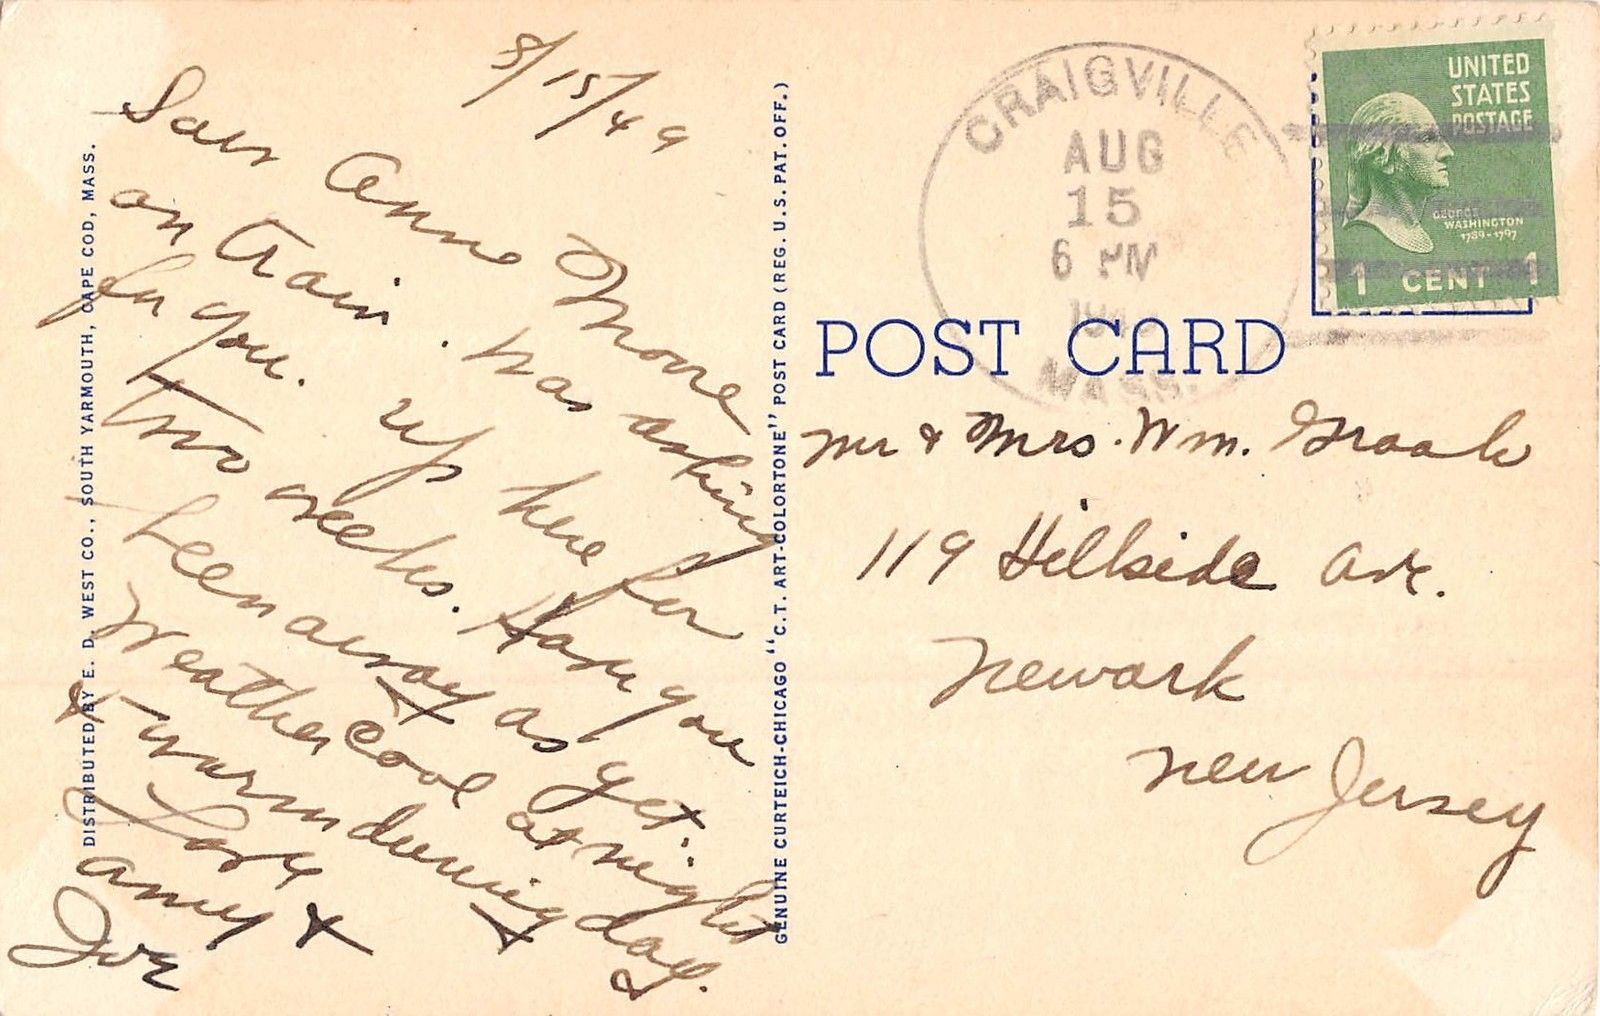 8/15/49
Saw Anne Moore
on train. Was asking
for you. Up here for
two weeks. Have you
been away as yet.
Weather cool at night
& warm during day.
Love
Amy &
Joe
DISTRIBUTED BY E. D. WEST CO., SOUTH YARMOUTH, CAPE COD, MASS.
GENUINE CURTEICH-CHICAGO "C.T. ART-COLORTONE" POST CARD (REG. U.S. PAT. OFF.)
CRAIGVILLE
AUG
15
6 PM
MASS.
UNITED
STATES
POSTAGE
GEORGE
WASHINGTON
1789-1797
1 CENT 1
POST CARD
Mr & Mrs. Wm.
119 Hillside Ave.
Newark
New Jersey